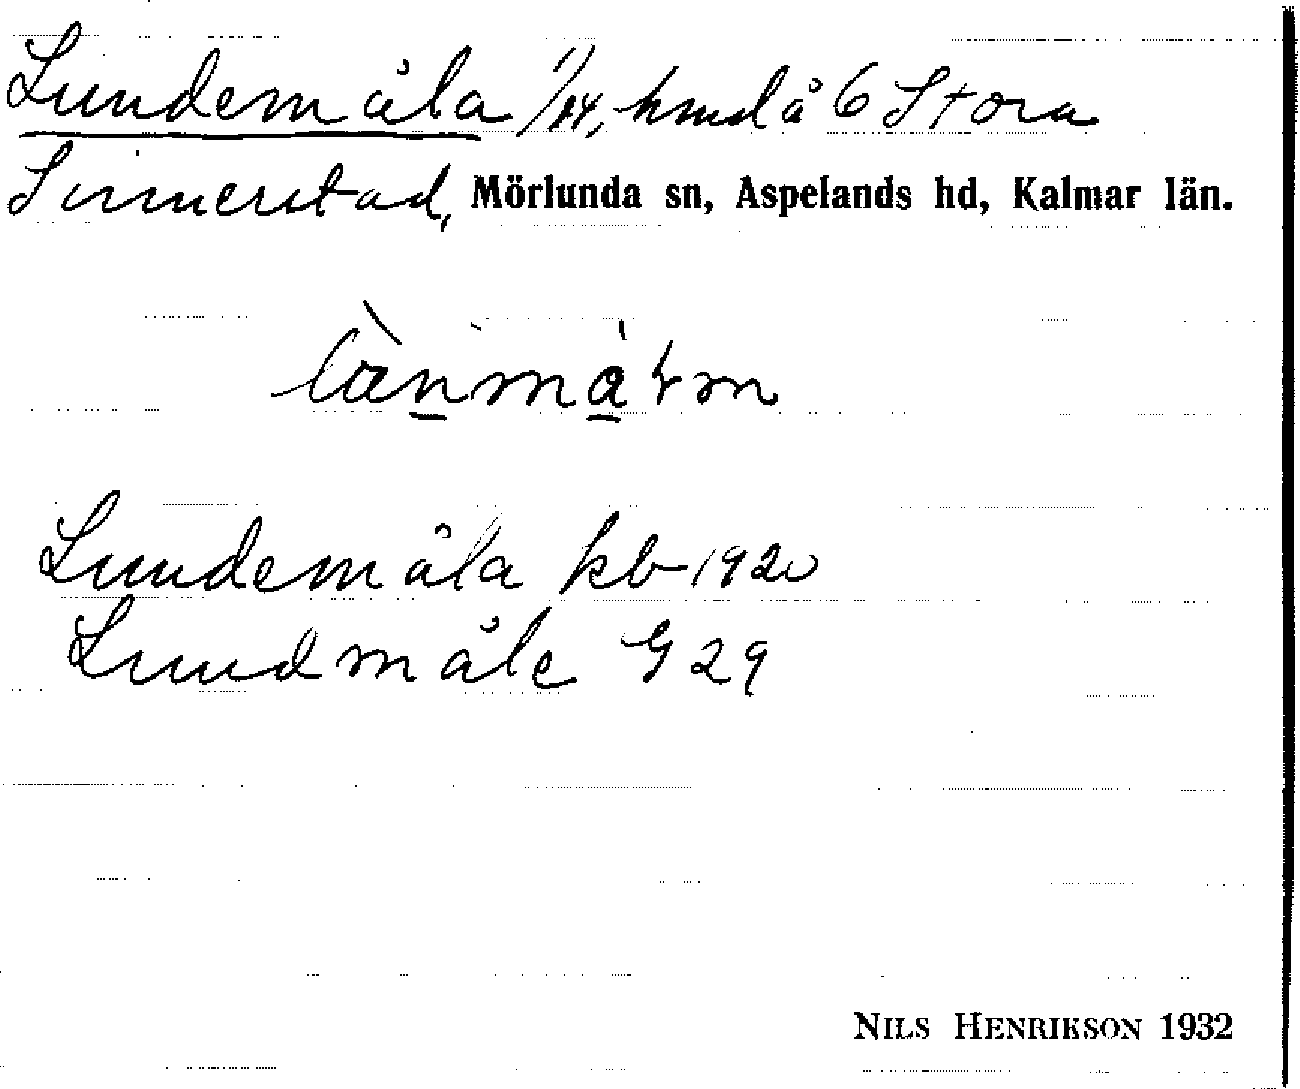 Lundemåla 1/14, hmd å 6 Stora
Sinnerstad, Mörlunda sn, Aspelands hd, Kalmar län.
Lundemåla kb 1920
Lundmåle G 29
NILS HENRIKSON 1932